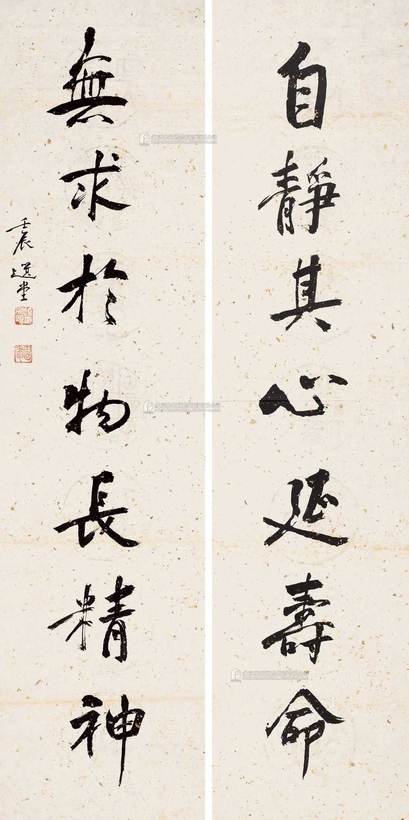 自靜其心延壽命
無求於物長精神
壬辰 選堂